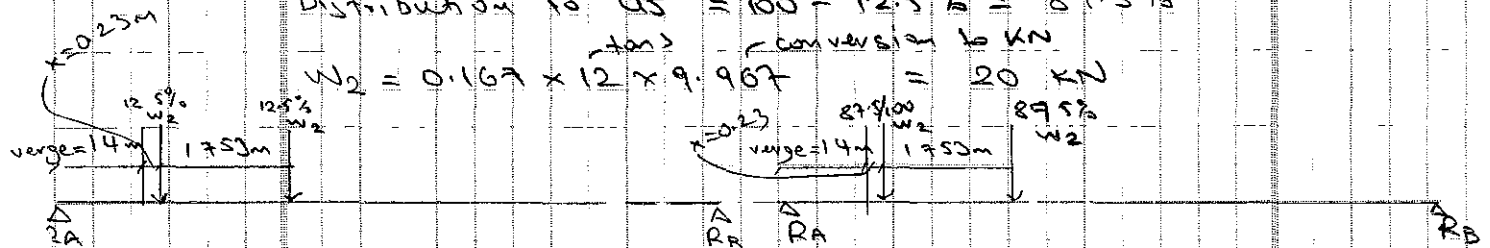 Distribution to US = 100 - 12.5 % = 87.5 %
tons conversion to KN
W2 = 0.167 x 12 x 9.967 = 20 KN
x=0.23m
12.5% W2
12.5% W2
verge=1.4m
1.753m
RA
RB
x=0.23
87.5/100 W2
87.5% W2
verge=1.4m
1.753m
RA
RB